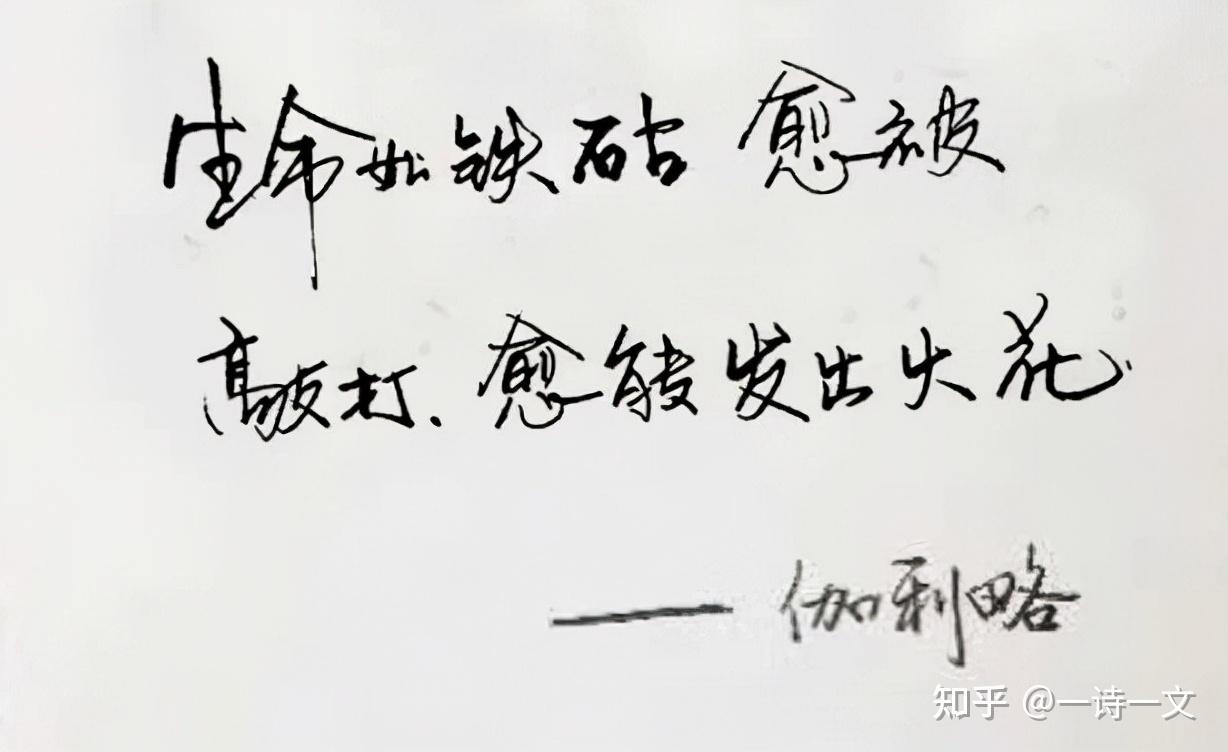 生命如铁砧 愈被
敲打.愈能发出火花
——伽利略
知乎 @一诗一文